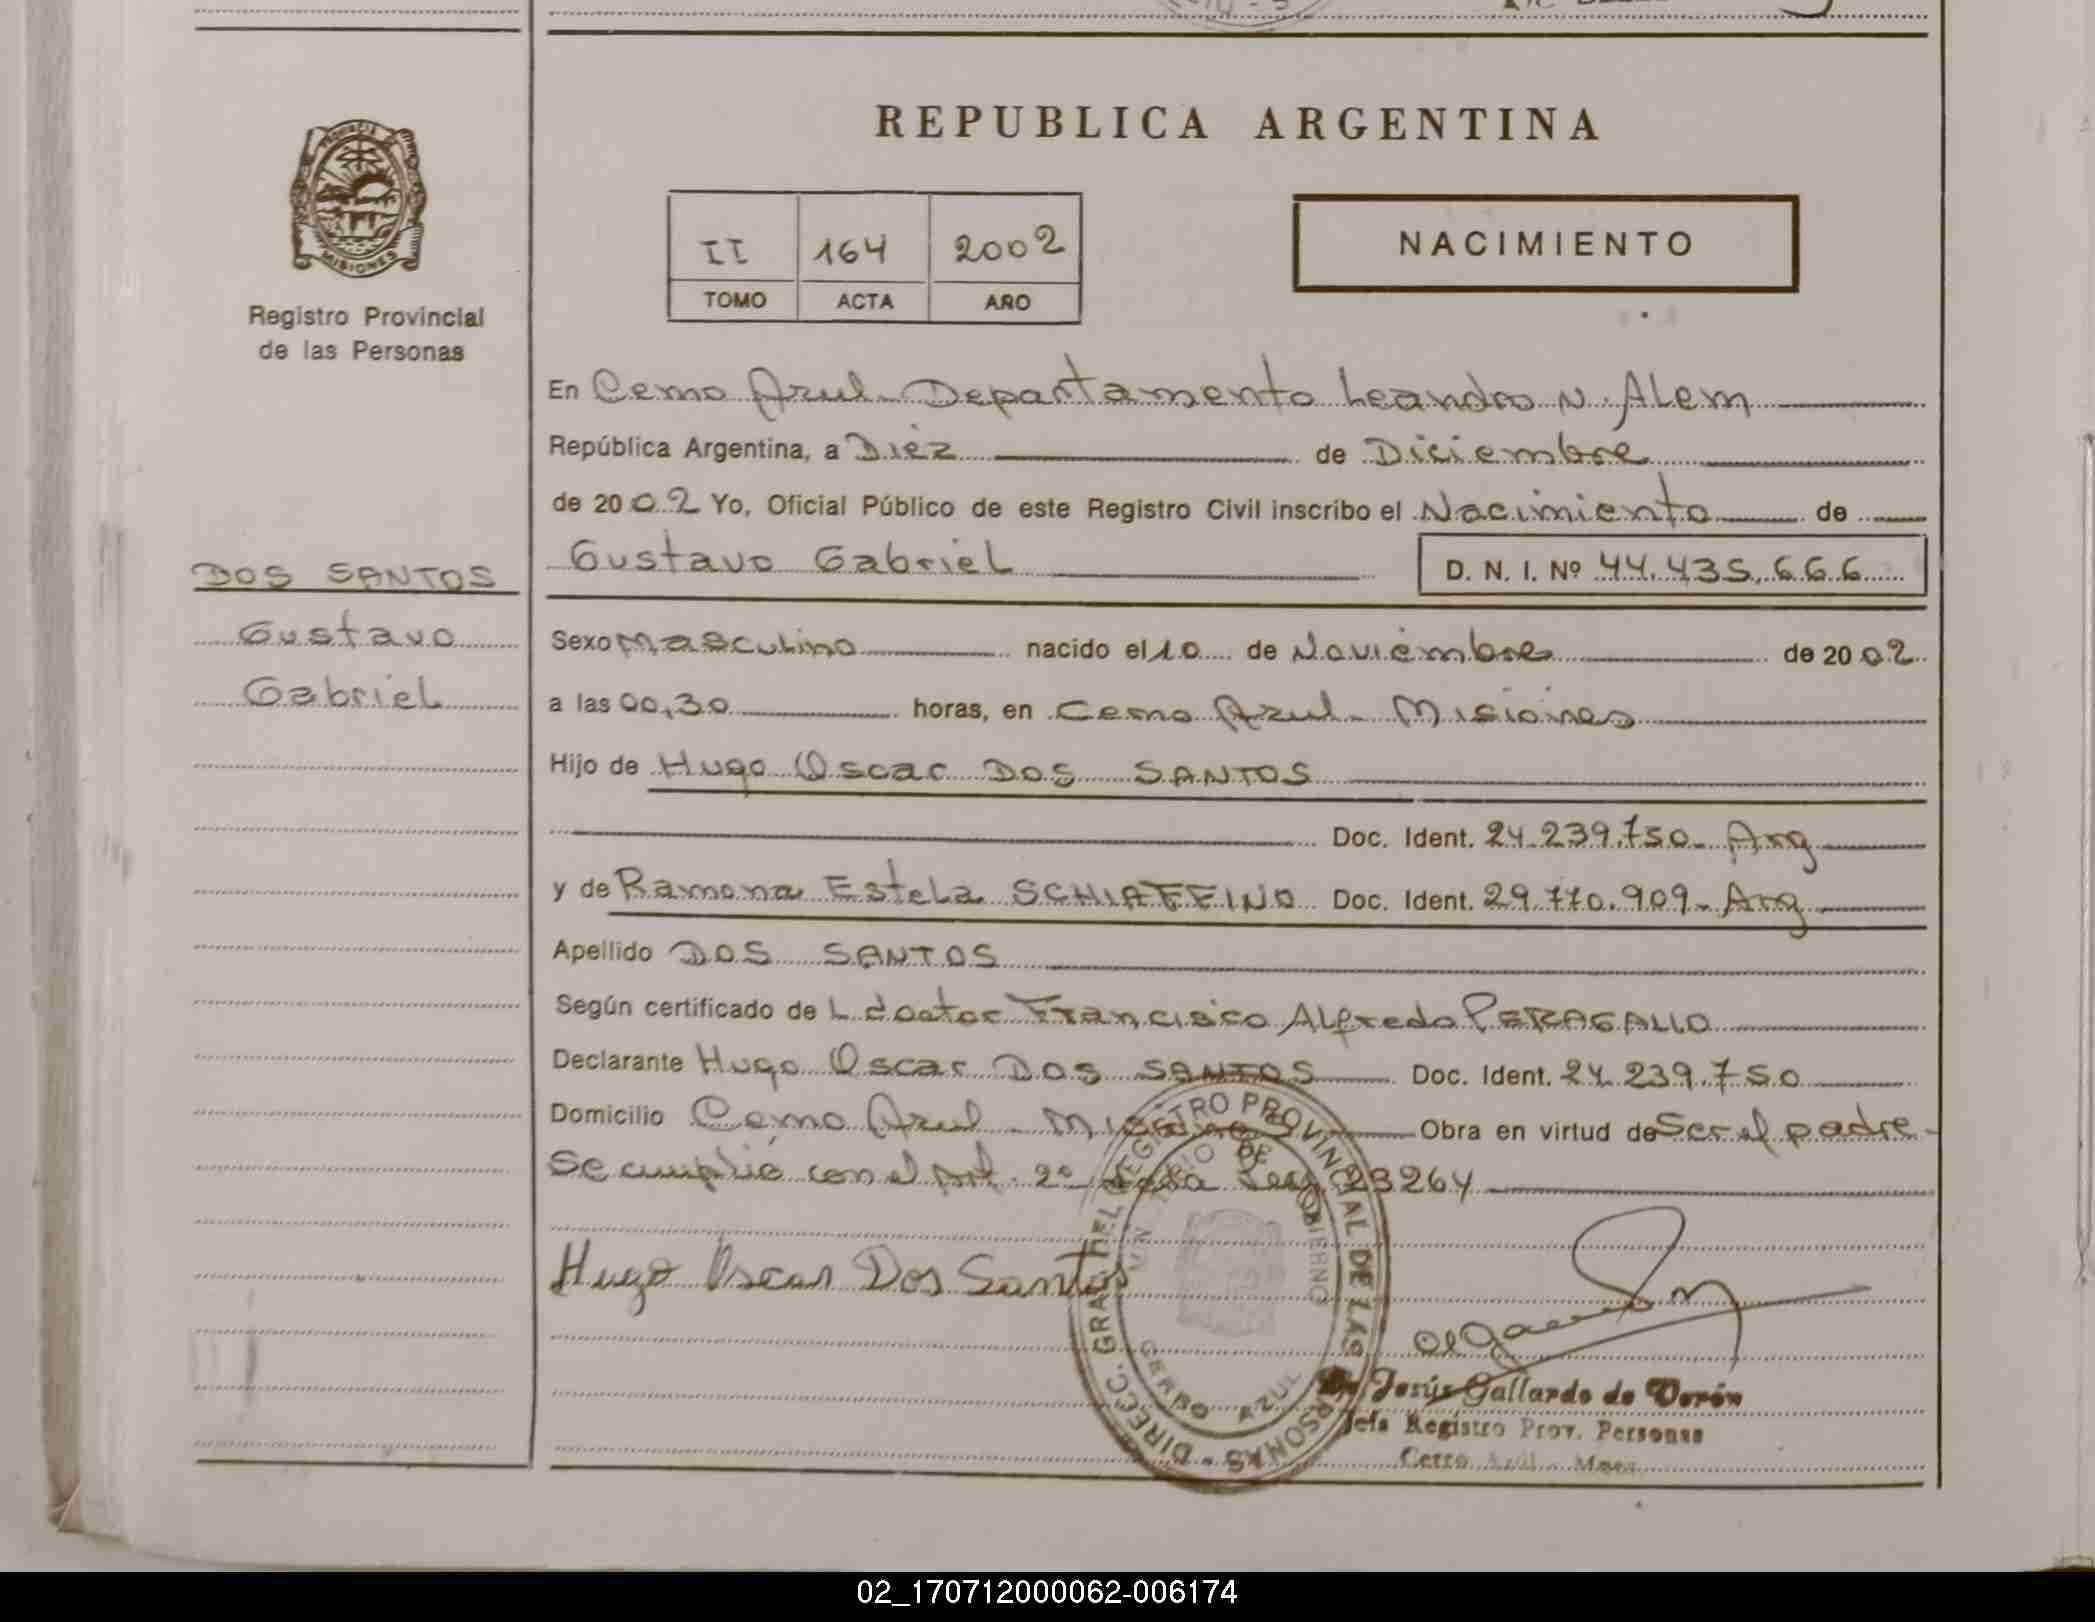 REPUBLICA ARGENTINA
MISIONES
Registro Provincial
de las Personas
II 164 2002
TOMO ACTA AÑO
NACIMIENTO
En Cerro Azul - Departamento Leandro N. Alem
República Argentina, a Diez de Diciembre
de 2002 Yo, Oficial Público de este Registro Civil inscribo el Nacimiento de
DOS SANTOS
Gustavo
Gabriel
Gustavo Gabriel D. N. I. Nº 44.435.666
Sexo Masculino nacido el 10 de Noviembre de 2002
a las 00,30 horas, en Cerro Azul - Misiones
Hijo de Hugo Oscar DOS SANTOS
Doc. Ident. 24.239.750 - Arg
y de Ramona Estela SCHIAFFINO Doc. Ident. 29.770.909 - Arg
Apellido DOS SANTOS
Según certificado de L doctor Francisco Alfredo PERAGALLO
Declarante Hugo Oscar DOS SANTOS Doc. Ident. 24.239.750
Domicilio Cerro Azul - Misiones Obra en virtud de Ser el padre -
Se cumplió con el Art. 2º de la Ley 23264
Hugo Oscar Dos Santos
DIRECC. GRAL DEL REGISTRO PROVINCIAL DE LAS PERSONAS -
MINISTERIO DE GOBIERNO
CERRO AZUL
Jesús Gallardo de Verón
Jefa Registro Prov. Personas
Cerro Azul - Mnes.
02_170712000062-006174